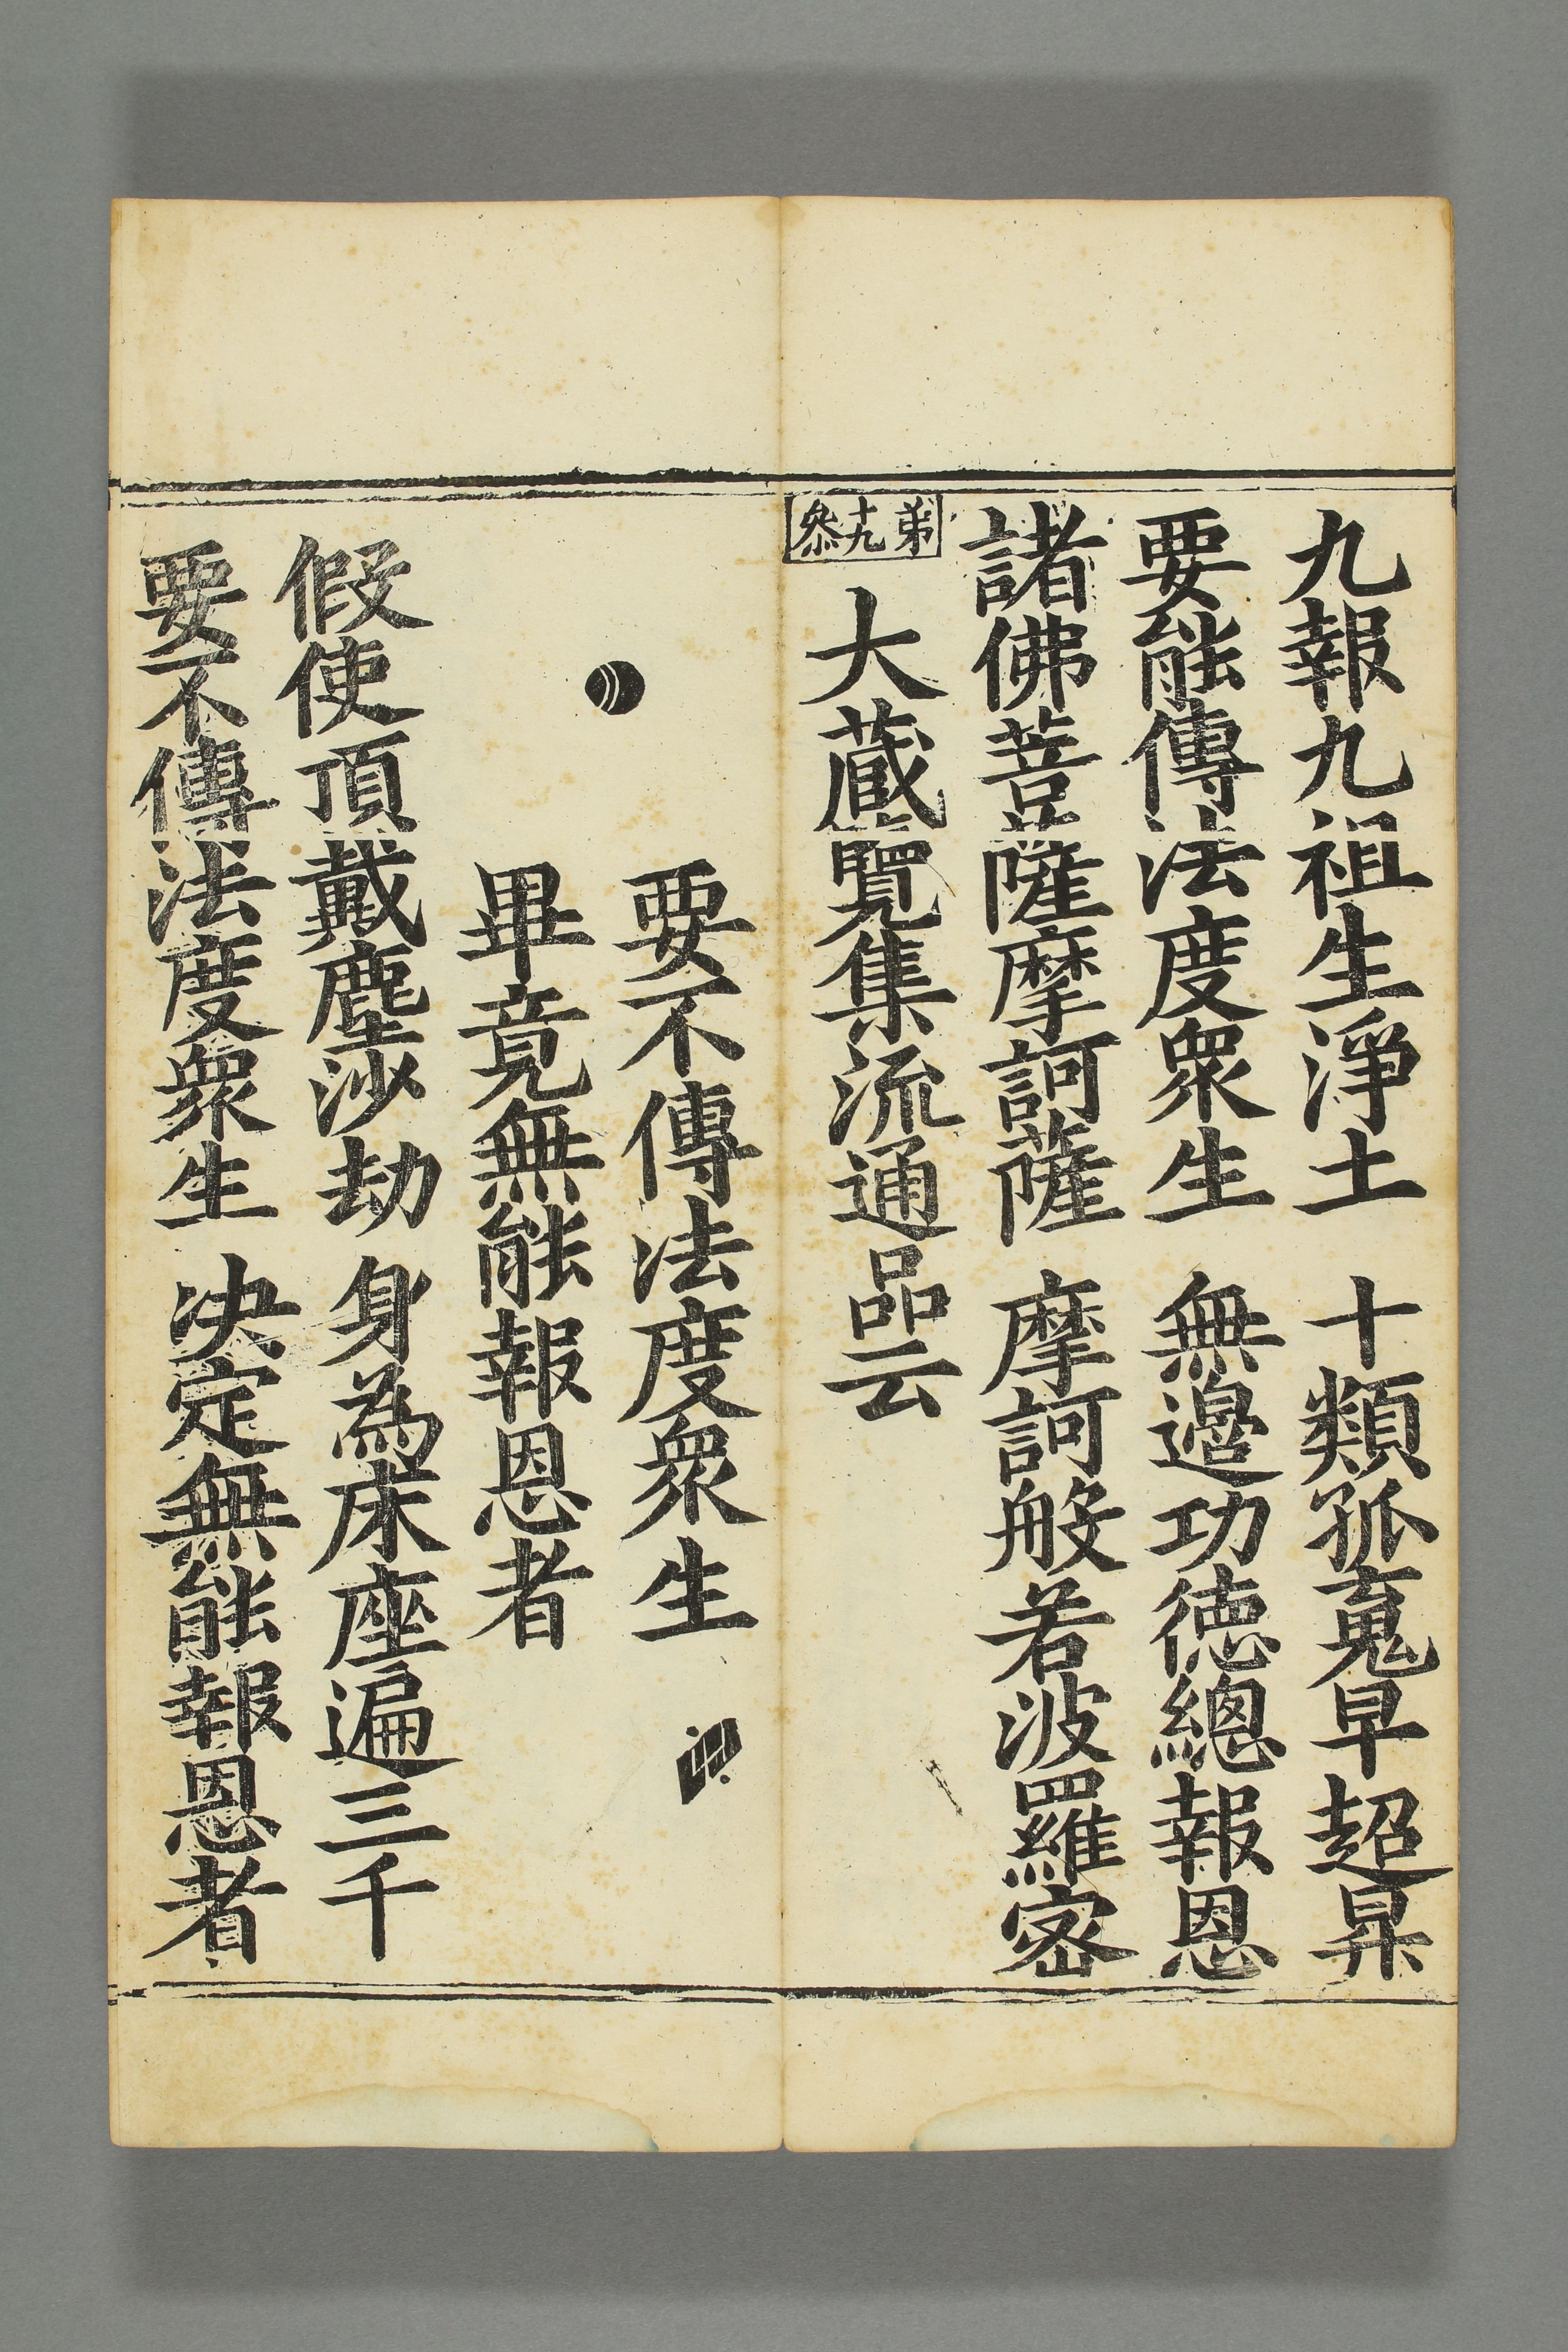 九報九祖生淨土　十類孤䰟早超昇
要能傳法度衆生　無邉功德總報恩
諸佛菩薩摩訶薩　摩訶般若波羅宻
弟十九叅
大藏覽集流通品云
要不傳法度衆生
畢竟無能報恩者
假使頂戴塵沙劫　身為床座遍三千
要不傳法度衆生　决定無能報恩者